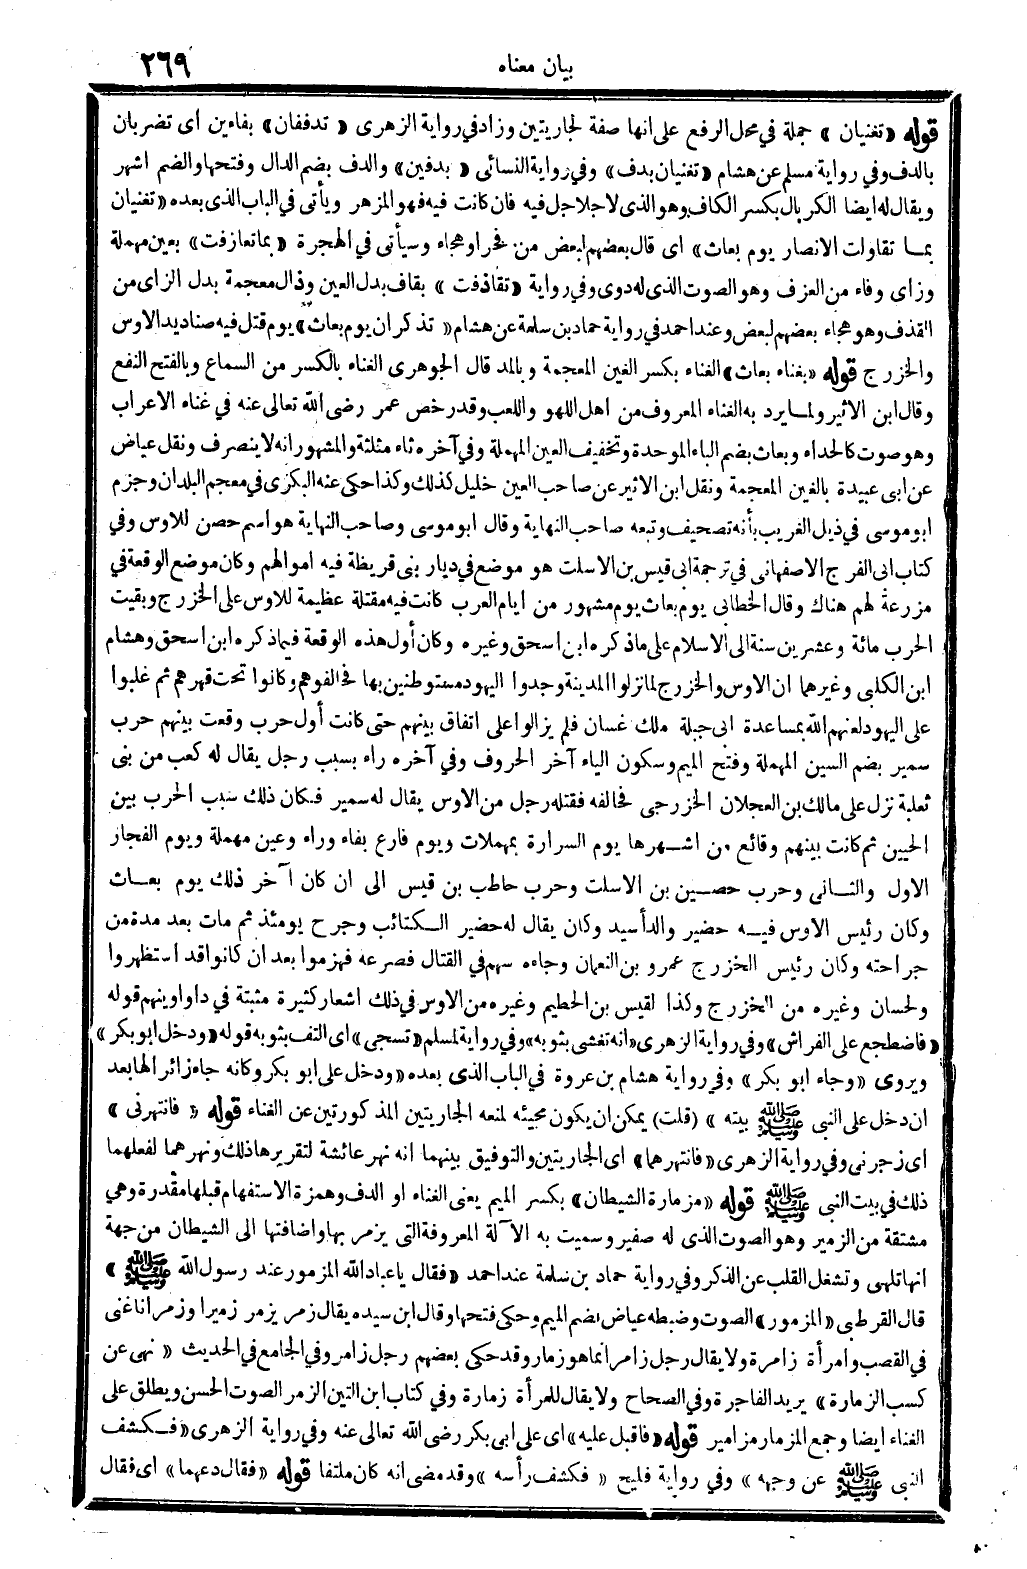 بيان معناه ٢٦٩
قوله «تغنيان» جملة في محل الرفع على انها صفة لجاريتين وزاد في رواية الزهرى «تدففان» بفاءين اى تضربان
بالدف وفي رواية مسلم عن هشام «تغنيان بدف» وفي رواية النسائى «بدفين» والدف بضم الدال وفتحها والضم اشهر
ويقال له ايضا الكربال بكسر الكاف وهو الذى لا جلاجل فيه فان كانت فيه فهو المزهر ويأتى في الباب الذى بعده «تغنيان
بمـا تقاولت الانصار يوم بعاث» اى قال بعضهم لبعض من فخر او هجاء وسيأتى في الهجرة «بما تعازفت» بعين مهملة
وزاى وفاء من العزف وهو الصوت الذى له دوى وفي رواية «تقاذفت» بقاف بدل العين وذال معجمة بدل الزاى من
القذف وهو هجاء بعضهم لبعض وعند احمد في رواية حماد بن سلمة عن هشام «تذكران يوم بعاث» يوم قتل فيه صناديد الاوس
والخزرج قوله «بغناء بعاث» الغناء بكسر الغين المعجمة وبالمد قال الجوهرى الغناء بالكسر من السماع وبالفتح النفع
وقال ابن الاثير ولم يرد به الغناء المعروف من اهل اللهو واللعب وقد رخص عمر رضى الله تعالى عنه في غناء الاعراب
وهو صوت كالحداء وبعاث بضم الباء الموحدة وتخفيف العين المهملة وفي آخره ثاء مثلثة والمشهور انه لا ينصرف ونقل عياض
عن ابى عبيدة بالغين المعجمة ونقل ابن الاثير عن صاحب العين خليل كذلك وكذا حكى عنه البكرى في معجم البلدان وجزم
ابو موسى في ذيل الغريب بأنه تصحيف وتبعه صاحب النهاية وقال ابو موسى وصاحب النهاية هو اسم حصن للاوس وفي
كتاب ابى الفرج الاصفهانى في ترجمة ابى قيس بن الاسلت هو موضع في ديار بنى قريظة فيه اموالهم وكان موضع الوقعة في
مزرعة لهم هناك وقال الخطابى يوم بعاث يوم مشهور من ايام العرب كانت فيه مقتلة عظيمة للاوس على الخزرج وبقيت
الحرب مائة وعشرين سنة الى الاسلام على ما ذكره ابن اسحق وغيره وكان أول هذه الوقعة فيما ذكره ابن اسحق وهشام
ابن الكلبى وغيرهما ان الاوس والخزرج لما نزلوا المدينة وجدوا اليهود مستوطنين بها فحالفوهم وكانوا تحت قهرهم ثم غلبوا
على اليهود لعنهم الله بمساعدة ابى جبلة ملك غسان فلم يزالوا على اتفاق بينهم حتى كانت أول حرب وقعت بينهم حرب
سمير بضم السين المهملة وفتح الميم وسكون الياء آخر الحروف وفي آخره راء بسبب رجل يقال له كعب من بنى
ثعلبة نزل على مالك بن العجلان الخزرجى فحالفه فقتله رجل من الاوس يقال له سمير فكان ذلك سبب الحرب بين
الحيين ثم كانت بينهم وقائع من اشهـرها يوم السرارة بمهملات ويوم فارع بفاء وراء وعين مهملة ويوم الفجار
الاول والثـانى وحرب حصـين بن الاسلت وحرب حاطب بن قيس الى ان كان آخر ذلك يوم بعـاث
وكان رئيس الاوس فيـه حضير والد أسيد وكان يقال له حضير الـكتائب وجرح يومئذ ثم مات بعد مدة من
جراحته وكان رئيس الخزرج عمرو بن النعمان وجاءه سهم في القتال فصرعه فهزموا بعد ان كانوا قد استظهروا
ولحسان وغيره من الخزرج وكذا لقيس بن الحطيم وغيره من الاوس في ذلك اشعار كثيرة مثبتة في دواوينهم قوله
«فاضطجع على الفراش» وفي رواية الزهرى «انه تغشى بثوبه» وفي رواية لمسلم «تسجى» اى التف بثوبه قوله «ودخل ابو بكر»
ويروى «وجاء ابو بكر» وفي رواية هشام بن عروة في الباب الذى بعده «ودخل على ابو بكر وكانه جاء زائرا لها بعد
ان دخل على النبى ﷺ بيته» (قلت) يمكن ان يكون مجيئه لمنعه الجاريتين المذكورتين عن الغناء قوله «فانتهرنى»
اى زجرنى وفي رواية الزهرى «فانتهرهما» اى الجاريتين والتوفيق بينهما انه نهر عائشة لتقريرها ذلك ونهرهما لفعلهما
ذلك في بيت النبى ﷺ قوله «مزمارة الشيطان» بكسر الميم يعنى الغناء او الدف وهمزة الاستفهام قبلها مقدرة وهى
مشتقة من الزمير وهو الصوت الذى له صفير وسميت به الآلة المعروفة التى يزمر بها واضافتها الى الشيطان من جهة
انها تلهى وتشغل القلب عن الذكر وفي رواية حماد بن سلمة عند احمد «فقال يا عباد الله المزمور عند رسول الله ﷺ»
قال القرطبى «المزمور» الصوت وضبطه عياض بضم الميم وحكى فتحها وقال ابن سيده يقال زمر يزمر زميرا وزمرانا غنى
في القصب وامرأة زامرة ولا يقال رجل زامر انما هو زمار وقد حكى بعضهم رجل زامر وفي الجامع في الحديث «نهى عن
كسب الزمارة» يريد الفاجرة وفي الصحاح ولا يقال للمرأة زمارة وفي كتاب ابن التين الزمر الصوت الحسن ويطلق على
الغناء ايضا وجمع المزمار مزامير قوله «فاقبل عليه» اى على ابى بكر رضى الله تعالى عنه وفي رواية الزهرى «فـكشف
النبى ﷺ عن وجهه» وفي رواية فليح «فكشف رأسه» وقد مضى انه كان ملتفا قوله «فقال دعهما» اى فقال